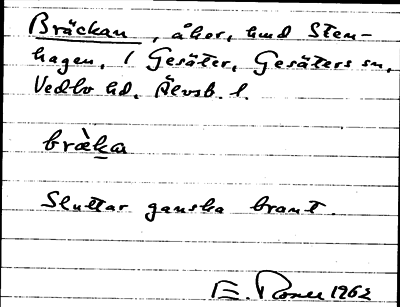 Bräckan, åker, hmd Sten-
hagen, 1 Gesäter, Gesäters sn,
Vedbo hd, Älvsb. l.
bræ̀ka
Sluttar ganska brant.
E. 1962